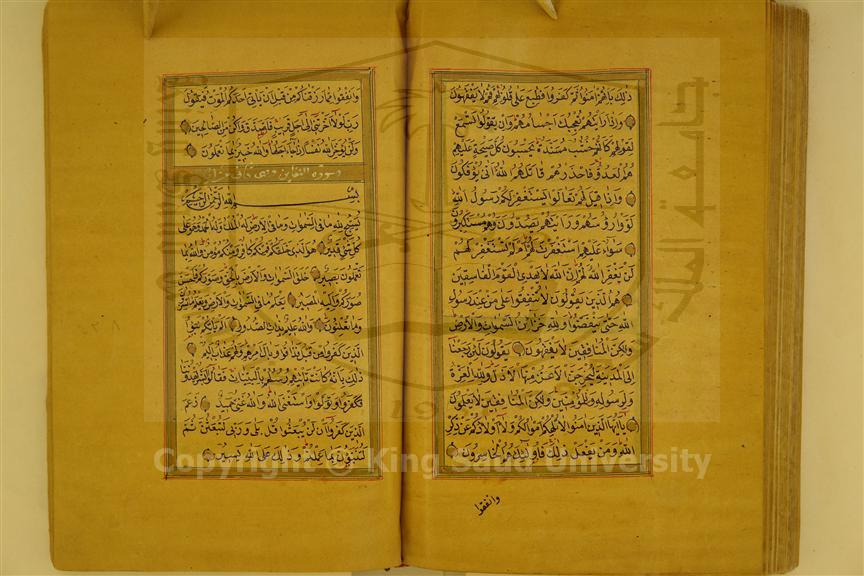 ذلك بانهم امنوا ثم كفروا فطبع على قلوبهم فهم لا يفقهون
واذا رايتهم تعجبك اجسامهم وان يقولوا تسمع
لقولهم كانهم خشب مسندة يحسبون كل صيحة عليهم
هم العدو فاحذرهم قاتلهم الله انى يؤفكون
واذا قيل لهم تعالوا يستغفر لكم رسول الله
لووا رؤسهم ورايتهم يصدون وهم مستكبرون
سواء عليهم استغفرت لهم ام لم تستغفر لهم
لن يغفر الله لهم ان الله لا يهدى القوم الفاسقين
هم الذين يقولون لا تنفقوا على من عند رسول
الله حتى ينفضوا ولله خزائن السموات والارض
ولكن المنافقين لا يفقهون يقولون لئن رجعنا
الى المدينة ليخرجن الاعز منها الاذل ولله العزة
ولرسوله وللمؤمنين ولكن المنافقين لا يعلمون
يا ايها الذين امنوا لا تلهكم اموالكم ولا اولادكم عن ذكر
الله ومن يفعل ذلك فاولئك هم الخاسرون
وانفقوا
وانفقوا مما رزقناكم من قبل ان ياتى احدكم الموت فيقول
رب لولا اخرتنى الى اجل قريب فاصدق واكن من الصالحين
ولن يؤخر الله نفسا اذا جاء اجلها والله خبير بما تعملون
سورة التغابن وهى
بسم الله الرحمن الرحيم
يسبح لله ما فى السموات وما فى الارض له الملك وله الحمد وهو على
كل شئ قدير هو الذى خلقكم فمنكم كافر ومنكم مؤمن والله بما
تعملون بصير خلق السموات والارض بالحق وصوركم فاحسن
صوركم واليه المصير يعلم ما فى السموات والارض ويعلم ما تسرون
وما تعلنون والله عليم بذات الصدور الم ياتكم نبؤا
الذين كفروا من قبل فذاقوا وبال امرهم ولهم عذاب اليم
ذلك بانه كانت تاتيهم رسلهم بالبينات فقالوا ابشر يهدوننا
فكفروا وتولوا واستغنى الله والله غنى حميد زعم
الذين كفروا ان لن يبعثوا قل بلى وربى لتبعثن ثم
لتنبؤن بما عملتم وذلك على الله يسير
جامعة الملك
19
Copyright © King Saud University